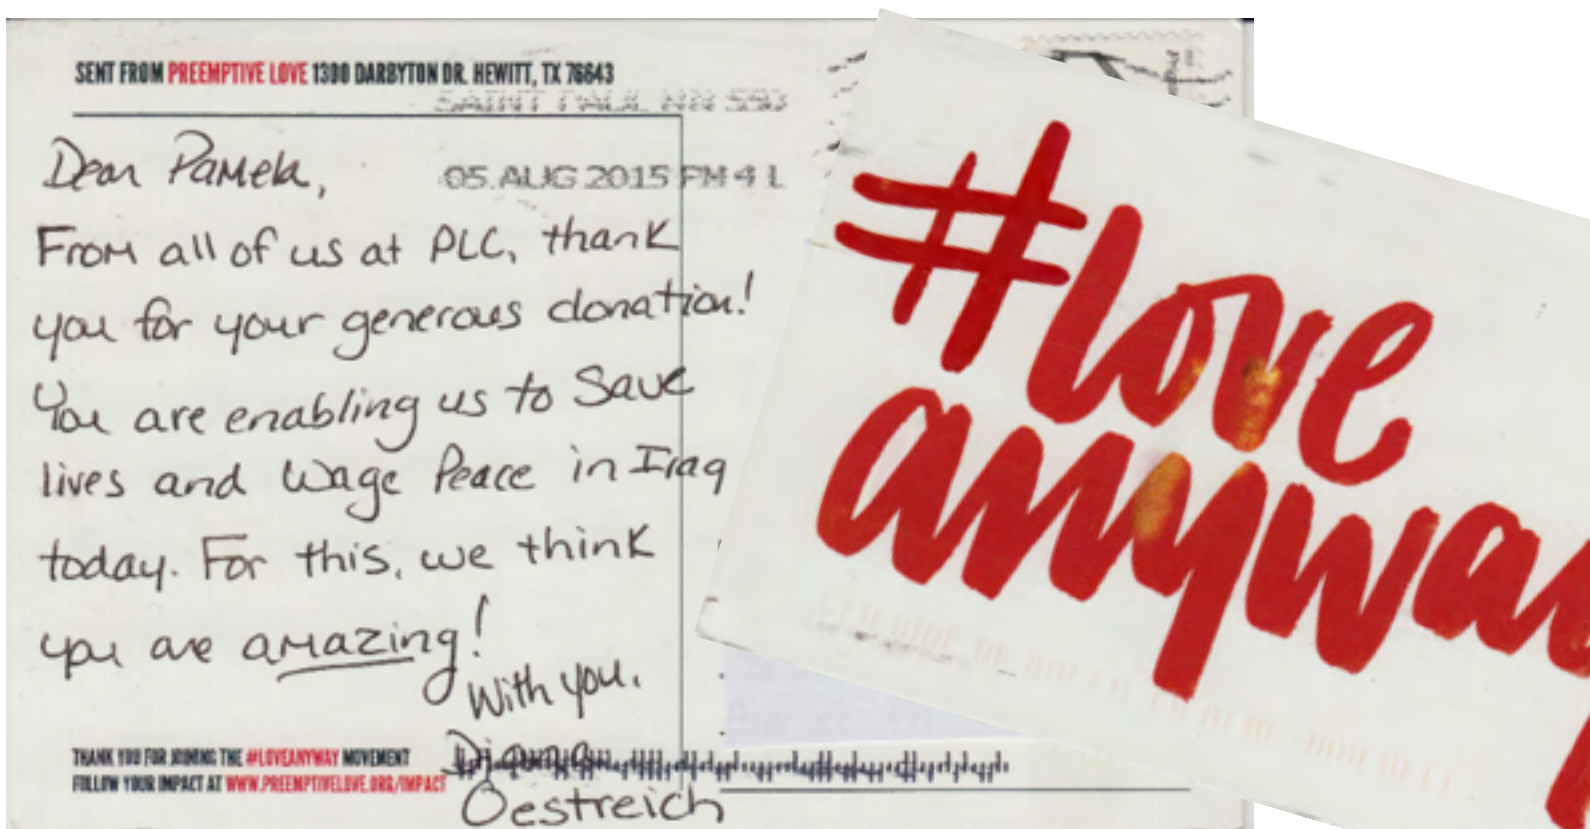 SENT FROM PREEMPTIVE LOVE 1300 DARBYTON DR. HEWITT, TX 76643
SAINT PAUL MN 550
05 AUG 2015 PM 4 L
Dear Pamela,
From all of us at PLC, thank
you for your generous donation!
You are enabling us to Save
lives and Wage Peace in Iraq
today. For this, we think
you are amazing!
With you,
Diana
Oestreich
THANK YOU FOR JOINING THE #LOVEANYWAY MOVEMENT
FOLLOW YOUR IMPACT AT WWW.PREEMPTIVELOVE.ORG/IMPACT
#love
anyway